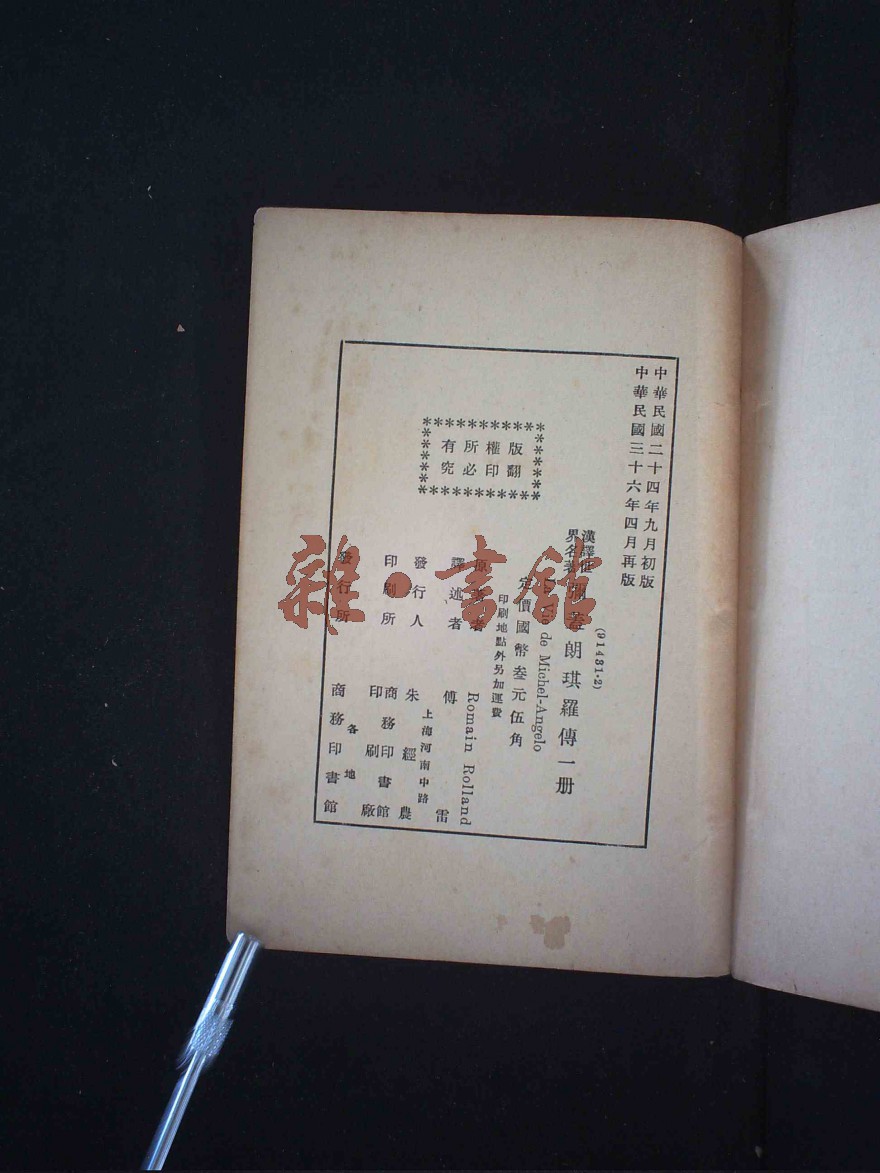 中華民國二十四年九月初版
中華民國三十六年四月再版
(91431·2)
漢譯世界名著
彌蓋朗琪羅傳一册
Vie de Michel-Angelo
定價國幣叁元伍角
印刷地點外另加運費
原著者 Romain Rolland
譯述者 傅雷
發行人 朱經農
上海河南中路
印刷所 商務印書館印刷廠
發行所 商務印書館
各地
版權所有
翻印必究
雜·書館